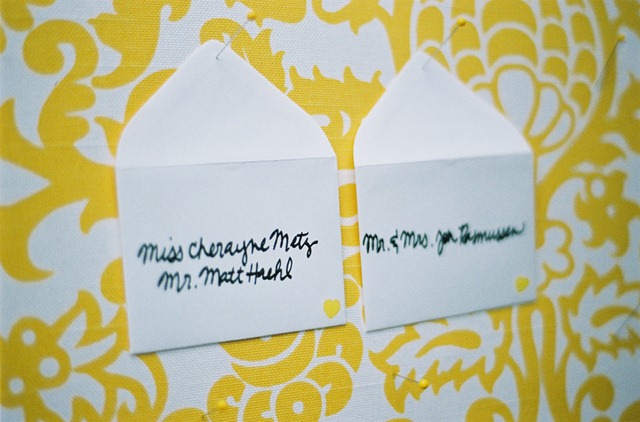 Miss Cherayne Metz
Mr. Matt Haehl
Mr. & Mrs. Jon Rasmussen